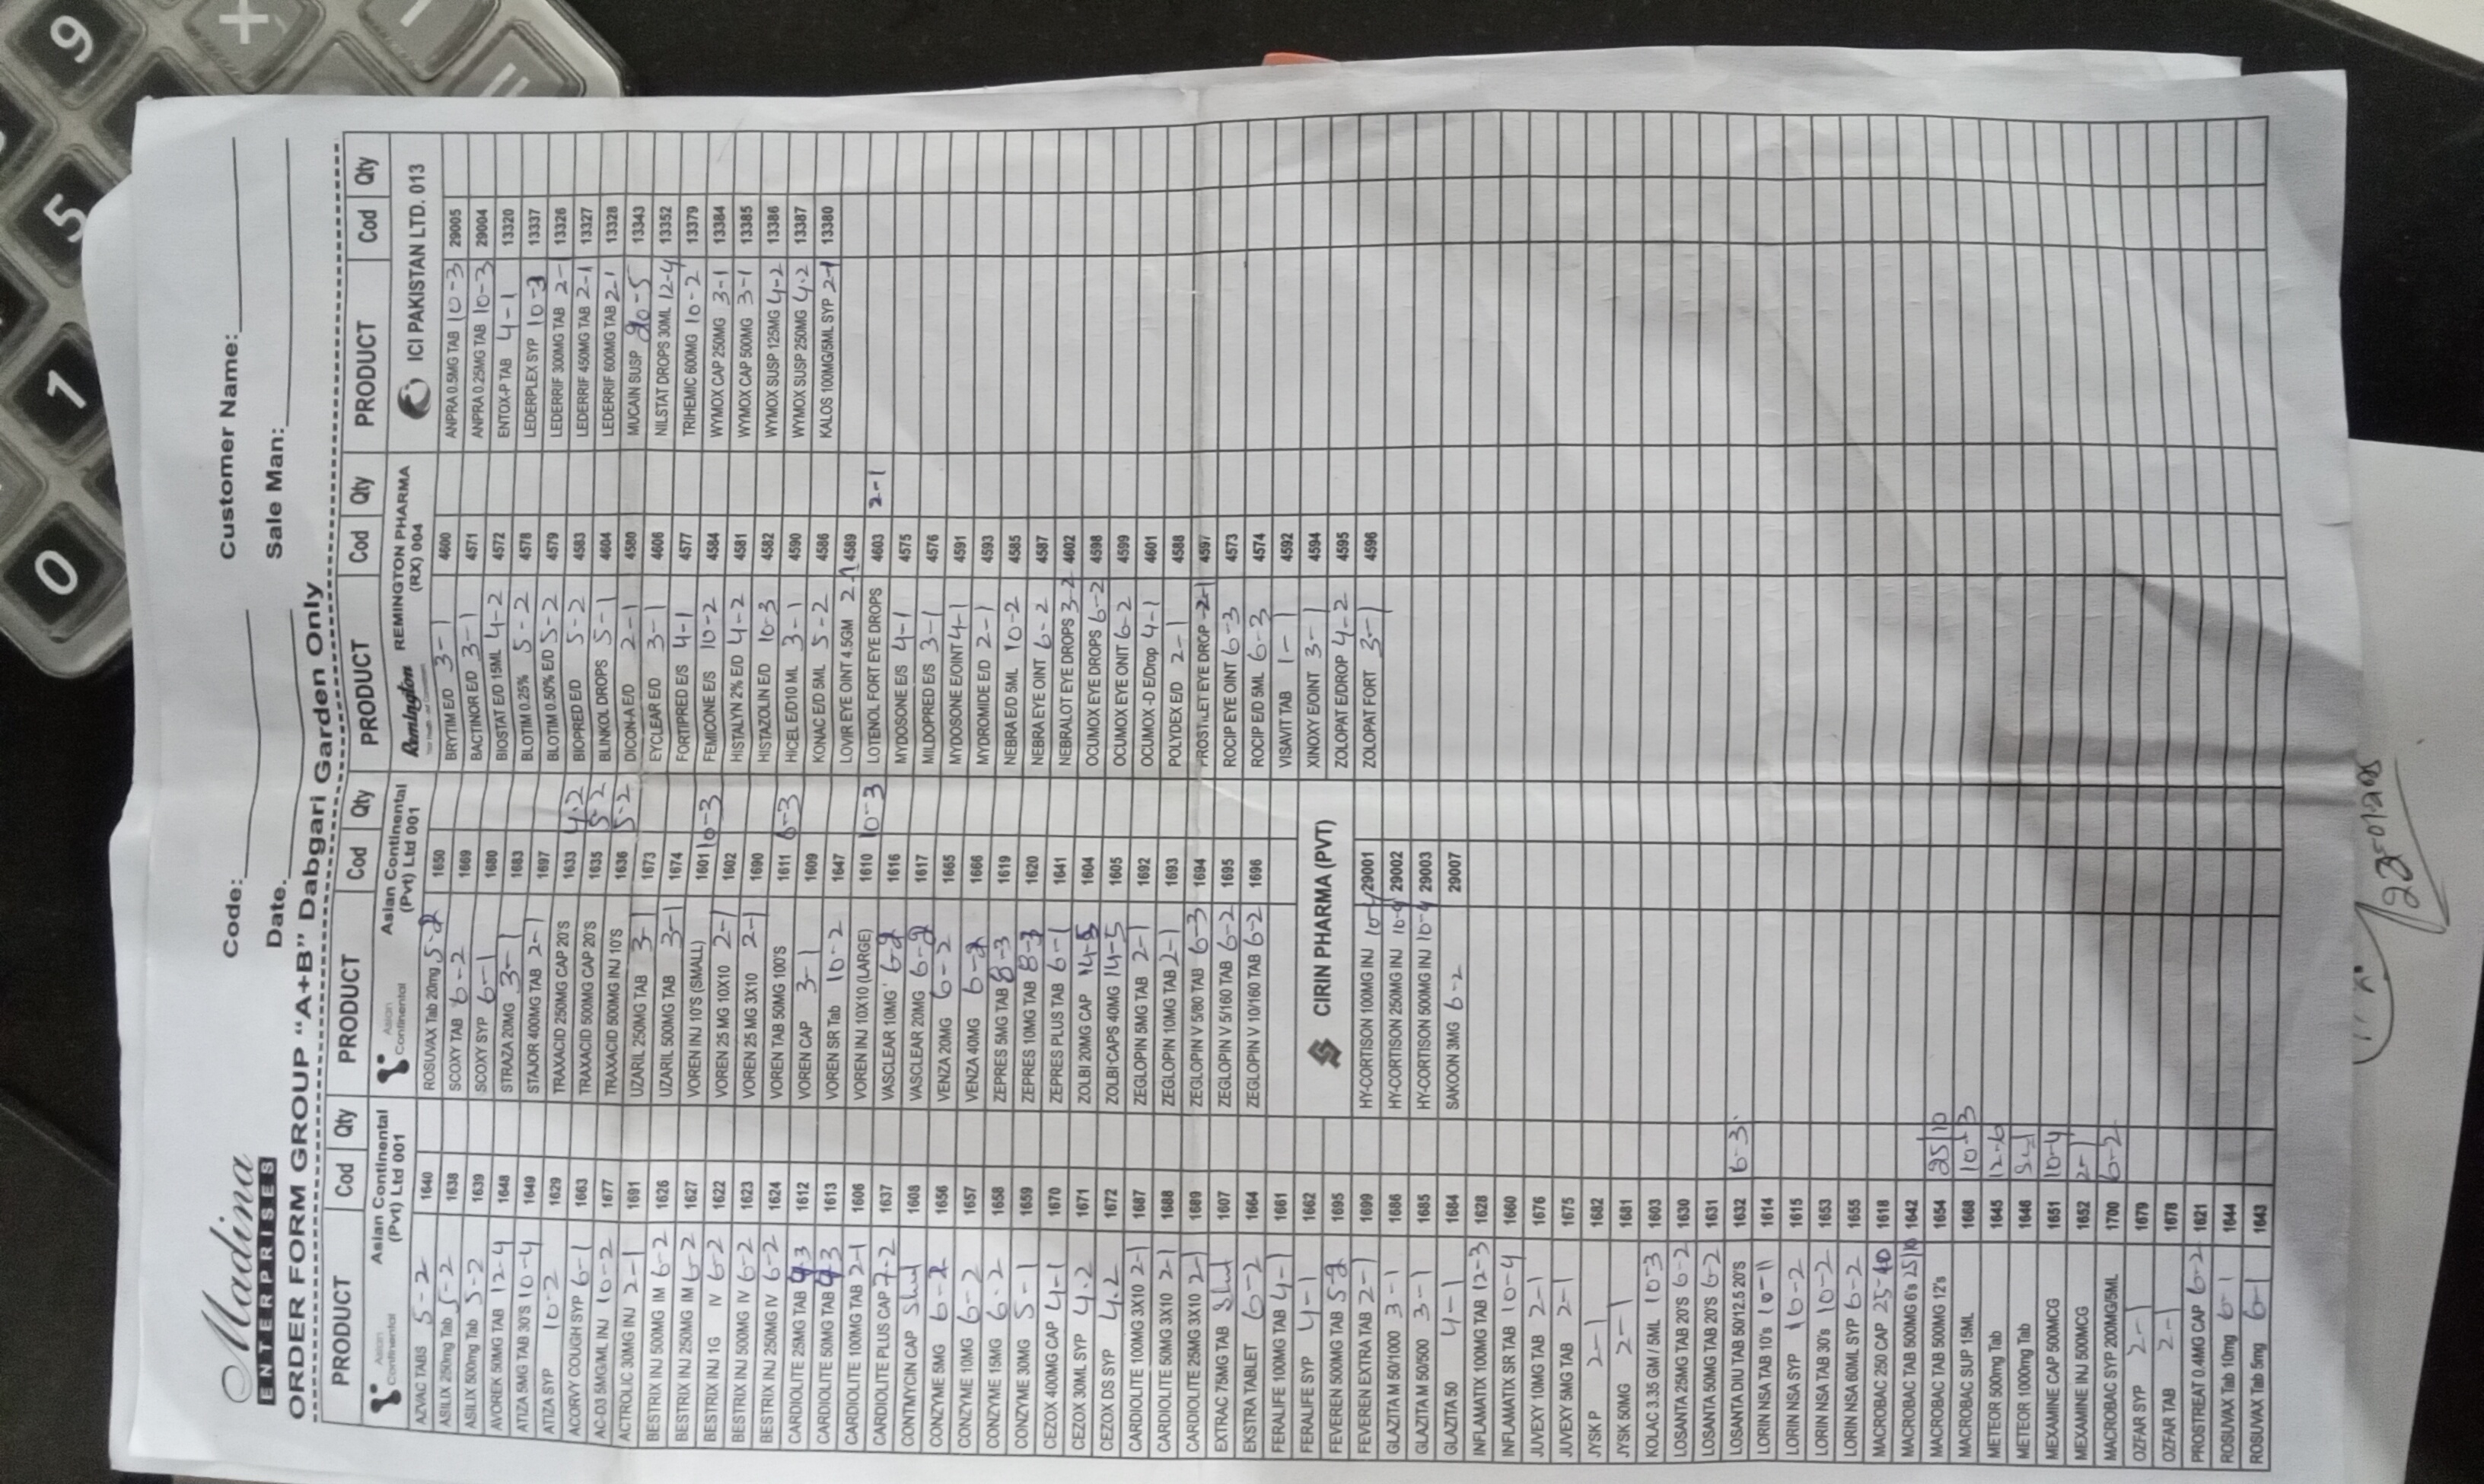 Madina
ENTERPRISES
Code: Customer Name:
Date. Sale Man:
ORDER FORM GROUP “A+B” Dabgari Garden Only
PRODUCT Cod Qty PRODUCT Cod Qty PRODUCT Cod Qty PRODUCT Cod Qty
Asian Continental
Asian Continental (Pvt) Ltd 001
AZVAC TABS 5-2 1640
ASILIX 250mg Tab 5-2 1638
ASILIX 500mg Tab 5-2 1639
AVOREK 50MG TAB 12-4 1648
ATIZA 5MG TAB 30'S 10-4 1649
ATIZA SYP 10-2 1629
ACORVY COUGH SYP 6-1 1663
AC-D3 5MG/ML INJ 10-2 1677
ACTROLIC 30MG INJ 2-1 1691
BESTRIX INJ 500MG IM 6-2 1626
BESTRIX INJ 250MG IM 6-2 1627
BESTRIX INJ 1G IV 6-2 1622
BESTRIX INJ 500MG IV 6-2 1623
BESTRIX INJ 250MG IV 6-2 1624
CARDIOLITE 25MG TAB 1612
CARDIOLITE 50MG TAB 1613
CARDIOLITE 100MG TAB 2-1 1606
CARDIOLITE PLUS CAP 7-2 1637
CONTMYCIN CAP 1608
CONZYME 5MG 6-2 1656
CONZYME 10MG 6-2 1657
CONZYME 15MG 6-2 1658
CONZYME 30MG 5-1 1659
CEZOX 400MG CAP 4-1 1670
CEZOX 30ML SYP 4-2 1671
CEZOX DS SYP 4-2 1672
CARDIOLITE 100MG 3X10 2-1 1687
CARDIOLITE 50MG 3X10 2-1 1688
CARDIOLITE 25MG 3X10 2-1 1689
EXTRAC 75MG TAB 1607
EKSTRA TABLET 6-2 1664
FERALIFE 100MG TAB 4-1 1661
FERALIFE SYP 4-1 1662
FEVEREN 500MG TAB 5-2 1695
FEVEREN EXTRA TAB 2-1 1699
GLAZITA M 50/1000 3-1 1686
GLAZITA M 50/500 3-1 1685
GLAZITA 50 4-1 1684
INFLAMATIX 100MG TAB 12-3 1628
INFLAMATIX SR TAB 10-4 1660
JUVEXY 10MG TAB 2-1 1676
JUVEXY 5MG TAB 2-1 1675
JYSK P 2-1 1682
JYSK 50MG 2-1 1681
KOLAC 3.35 GM / 5ML 10-3 1603
LOSANTA 25MG TAB 20'S 6-2 1630
LOSANTA 50MG TAB 20'S 6-2 1631
LOSANTA DIU TAB 50/12.5 20'S 1632 6-3
LORIN NSA TAB 10's 1614
LORIN NSA SYP 6-2 1615
LORIN NSA TAB 30's 10-2 1653
LORIN NSA 60ML SYP 6-2 1655
MACROBAC 250 CAP 25-10 1618
MACROBAC TAB 500MG 6's 25/10 1642
MACROBAC TAB 500MG 12's 1654 25/10
MACROBAC SUP 15ML 1668 10-3
METEOR 500mg Tab 1645 12-6
METEOR 1000mg Tab 1646
MEXAMINE CAP 500MCG 1651 10-4
MEXAMINE INJ 500MCG 1652 2-1
MACROBAC SYP 200MG/5ML 1700 6-2
OZFAR SYP 2-1 1679
OZFAR TAB 2-1 1678
PROSTREAT 0.4MG CAP 6-2 1621
ROSUVAX Tab 10mg 6-1 1644
ROSUVAX Tab 5mg 6-1 1643
Asian Continental
Asian Continental (Pvt) Ltd 001
ROSUVAX Tab 20mg 5-2 1650
SCOXY TAB 6-2 1669
SCOXY SYP 6-1 1680
STRAZA 20MG 3-1 1683
STAJOR 400MG TAB 2-1 1697
TRAXACID 250MG CAP 20'S 1633 4-2
TRAXACID 500MG CAP 20'S 1635 5-2
TRAXACID 500MG INJ 10'S 1636 5-2
UZARIL 250MG TAB 3-1 1673
UZARIL 500MG TAB 3-1 1674
VOREN INJ 10'S (SMALL) 1601 10-3
VOREN 25 MG 10X10 2-1 1602
VOREN 25 MG 3X10 2-1 1690
VOREN TAB 50MG 100'S 1611 6-3
VOREN CAP 3-1 1609
VOREN SR Tab 10-2 1647
VOREN INJ 10X10 (LARGE) 1610 10-3
VASCLEAR 10MG 6-2 1616
VASCLEAR 20MG 6-2 1617
VENZA 20MG 6-2 1665
VENZA 40MG 6-2 1666
ZEPRES 5MG TAB 8-3 1619
ZEPRES 10MG TAB 8-3 1620
ZEPRES PLUS TAB 6-1 1641
ZOLBI 20MG CAP 14-5 1604
ZOLBI CAPS 40MG 14-5 1605
ZEGLOPIN 5MG TAB 2-1 1692
ZEGLOPIN 10MG TAB 2-1 1693
ZEGLOPIN V 5/80 TAB 6-3 1694
ZEGLOPIN V 5/160 TAB 6-2 1695
ZEGLOPIN V 10/160 TAB 6-2 1696
CIRIN PHARMA (PVT)
HY-CORTISON 100MG INJ 10-4 29001
HY-CORTISON 250MG INJ 10-4 29002
HY-CORTISON 500MG INJ 10-4 29003
SAKOON 3MG 6-2 29007
Remington REMINGTON PHARMA (RX) 004
BRYTIM E/D 3-1 4600
BACTINOR E/D 3-1 4571
BIOSTAT E/D 15ML 4-2 4572
BLOTIM 0.25% 5-2 4578
BLOTIM 0.50% E/D 5-2 4579
BIOPRED E/D 5-2 4583
BLINKOL DROPS 5-1 4604
DICON-A E/D 2-1 4580
EYCLEAR E/D 3-1 4606
FORTIPRED E/S 4-1 4577
FEMICONE E/S 10-2 4584
HISTALYN 2% E/D 4-2 4581
HISTAZOLIN E/D 10-3 4582
HICEL E/D10 ML 3-1 4590
KONAC E/D 5ML 5-2 4586
LOVIR EYE OINT 4.5GM 2-1 4589
LOTENOL FORT EYE DROPS 4603 2-1
MYDOSONE E/S 4-1 4575
MILDOPRED E/S 3-1 4576
MYDOSONE E/OINT 4-1 4591
MYDROMIDE E/D 2-1 4593
NEBRA E/D 5ML 10-2 4585
NEBRA EYE OINT 6-2 4587
NEBRALOT EYE DROPS 3-2 4602
OCUMOX EYE DROPS 6-2 4598
OCUMOX EYE ONIT 6-2 4599
OCUMOX -D E/Drop 4-1 4601
POLYDEX E/D 2-1 4588
PROSTILET EYE DROP 2-1 4597
ROCIP EYE OINT 6-3 4573
ROCIP E/D 5ML 6-3 4574
VISAVIT TAB 1-1 4592
XINOXY E/OINT 3-1 4594
ZOLOPAT E/DROP 4-2 4595
ZOLOPAT FORT 3-1 4596
ICI PAKISTAN LTD. 013
ANPRA 0.5MG TAB 10-3 29005
ANPRA 0.25MG TAB 10-3 29004
ENTOX-P TAB 4-1 13320
LEDERPLEX SYP 10-3 13337
LEDERRIF 300MG TAB 2-1 13326
LEDERRIF 450MG TAB 2-1 13327
LEDERRIF 600MG TAB 2-1 13328
MUCAIN SUSP 20-5 13343
NILSTAT DROPS 30ML 12-4 13352
TRIHEMIC 600MG 10-2 13379
WYMOX CAP 250MG 3-1 13384
WYMOX CAP 500MG 3-1 13385
WYMOX SUSP 125MG 4-2 13386
WYMOX SUSP 250MG 4-2 13387
KALOS 100MG/5ML SYP 2-1 13380
9
+
5
1
0